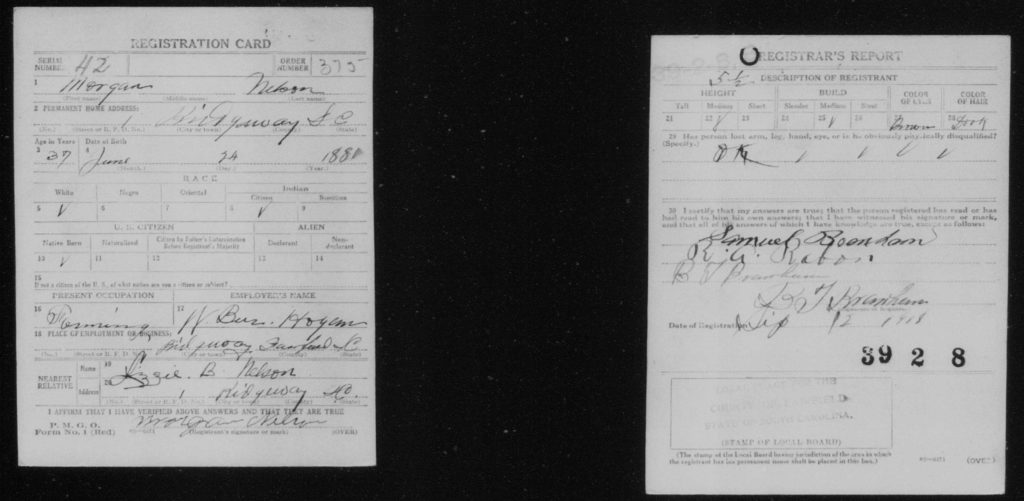 REGISTRATION CARD
SERIAL NUMBER 42 ORDER NUMBER 375
1 Morgan Nelson
(First name) (Middle name) (Last name)
2 PERMANENT HOME ADDRESS:
1 Ridgway S.C
(No.) (Street or R. F. D. No.) (City or town) (County) (State)
Age in Years Date of Birth
3 37 4 June 24 1881
(Month.) (Day.) (Year.)
RACE
White Negro Oriental Indian
Citizen Noncitizen
5 V 6 7 8 V 9
U. S. CITIZEN ALIEN
Native Born Naturalized Citizen by Father's Naturalization Before Registrant's Majority Declarant Non-declarant
10 V 11 12 13 14
15
If not a citizen of the U. S., of what nation are you a citizen or subject?
PRESENT OCCUPATION EMPLOYER'S NAME
16 Farming 17 Hogan
18 PLACE OF EMPLOYMENT OR BUSINESS:
Ridgway Fairfield S C
(No.) (Street or R. F. D. No.) (City or town) (County) (State)
NEAREST RELATIVE
Name 19 Lizzie B. Nelson
Address 20 1 Ridgway SC.
(No.) (Street or R. F. D. No.) (City or town) (County) (State)
I AFFIRM THAT I HAVE VERIFIED ABOVE ANSWERS AND THAT THEY ARE TRUE
P. M. G. O.
Form No. 1 (Red) Morgan Nelson
(Registrant's signature or mark) (OVER)
REGISTRAR'S REPORT
5½ DESCRIPTION OF REGISTRANT
HEIGHT BUILD COLOR OF EYES COLOR OF HAIR
Tall Medium Short Slender Medium Stout
21 22 V 23 24 25 V 26 27 Brown 28
29 Has person lost arm, leg, hand, eye, or is he obviously physically disqualified?
(Specify.)
30 I certify that my answers are true; that the person registered has read or has had read to him his own answers; that I have witnessed his signature or mark, and that all of his answers of which I have knowledge are true, except as follows:
Samuel Branham
R. A. Rabon
B T Branham
B T Branham
Date of Registration Sep 12 1918
39 2 8
LOCAL BOARD FOR THE
COUNTY OF FAIRFIELD
STATE OF SOUTH CAROLINA.
(STAMP OF LOCAL BOARD)
(The stamp of the Local Board having jurisdiction of the area in which the registrant has his permanent home shall be placed in this box.)
(OVER)